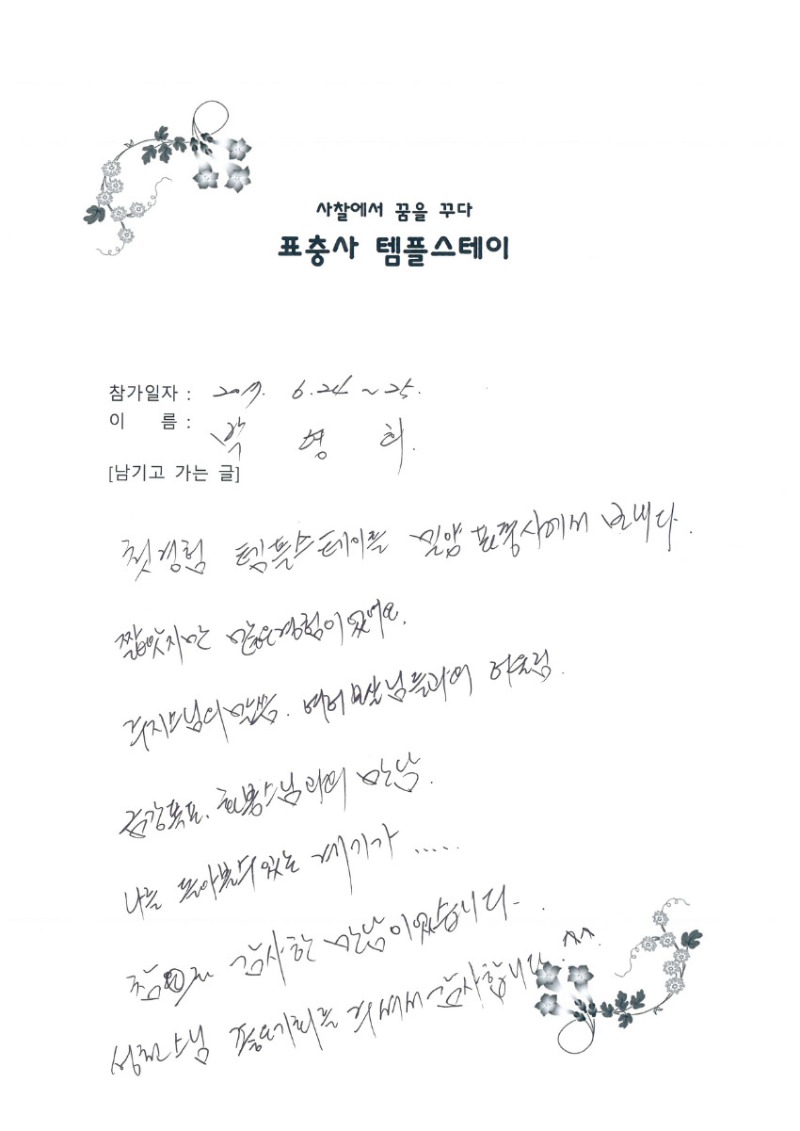 사찰에서 꿈을 꾸다
표충사 템플스테이
참가일자 : 2017. 6. 24 ~ 25.
이 름 : 박 영 희.
[남기고 가는 글]
첫경험 템플스테이를 밀양 표충사에서 보내다.
짧았지만 많은경험이 있어요.
주지스님의 말씀. 여러 보살님들과의 어울림.
금강폭포. 스님과의 만남.
나를 돌아볼수 있는 계기가 .....
참으로 감사한 만남이었습니다.
스님 좋은기회를 주셔서 감사합니다. ^^.